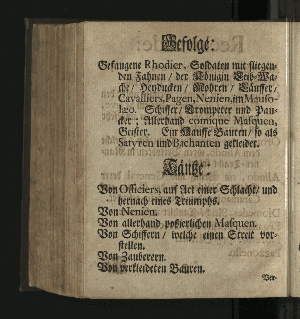 Gefolge:
Gefangene Rhodier, Soldaten mit fliegen-
den Fahnen / der Königin Leib-Wa-
che / Heyducken / Mohren / Läuffer /
Cavalliers, Pagen, Nenien, im Mauso-
læo. Schiffer / Trompeter und Pau-
cker; Allerhand comique Masquen,
Geister. Ein Hauffe Bauren / so als
Satyren und Bachanten gekleidet.
Täntze:
Von Officiers, auf Art einer Schlacht / und
hernach eines Triumphs.
Von Nenien.
Von allerhand possierlichen Masquen.
Von Schiffern / welche einen Streit vor-
stellen.
Von Zauberern.
Von verkleideten Bauren.
Ver-